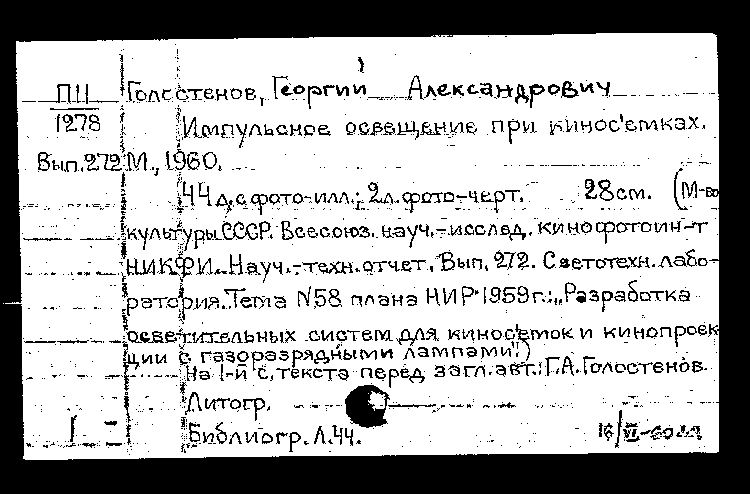 П11 Голостенов, Георгий Александрович
1278 Импульсное освещение при киносъемках.
Вып.272 М., 1960.
44 л. с фото-илл.; 2 л. фото-черт. 28 см. (М-во
культуры СССР. Всесоюз. науч.-исслед. кинофотоин-т
НИКФИ. Науч.-техн. отчет. Вып. 272. Светотехн. лабо-
ратория. Тема N58 плана НИР 1959 г.: „Разработка
осветительных систем для киносъемок и кинопроек-
ции с газоразрядными лампами")
На 1-й с. текста перед загл. авт.: Г.А. Голостенов.
Литогр.
Библиогр. л. 44.
16/VI-60